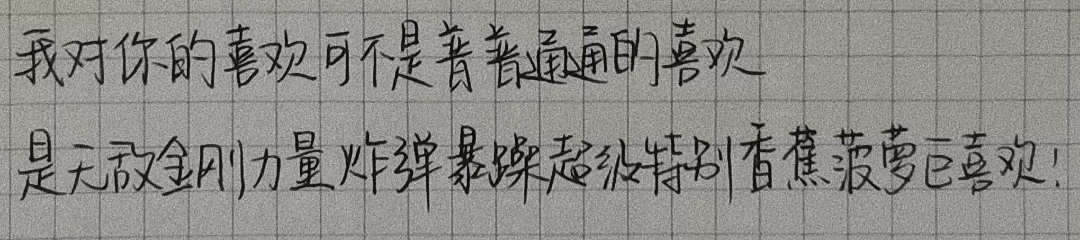 我对你的喜欢可不是普普通通的喜欢
是无敌金刚力量炸弹暴躁超级特别香蕉菠萝巨喜欢！